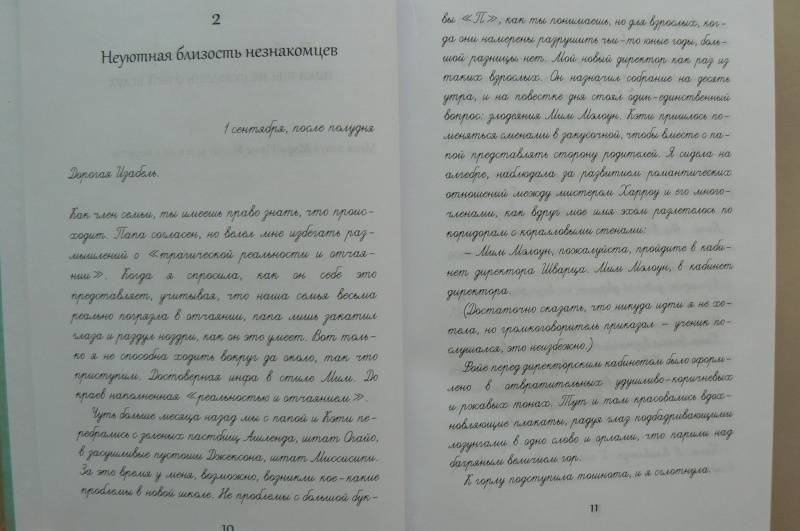 2
Неуютная близость незнакомцев
1 сентября, после полудня
Дорогая Изабель.
Как член семьи, ты имеешь право знать, что проис-
ходит. Папа согласен, но велел мне избегать раз-
мышлений о «трагической реальности и отчая-
нии». Когда я спросила, как он себе это
представляет, учитывая, что наша семья весьма
реально погрязла в отчаянии, папа лишь закатил
глаза и раздул ноздри, как он это умеет. Вот толь-
ко я не способна ходить вокруг да около, так что
приступим. Достоверная инфа в стиле Мим. До
краев наполненная «реальностью и отчаянием».
Чуть больше месяца назад мы с папой и Кэти пе-
ребрались с зеленых пастбищ Ашленда, штат Огайо,
в засушливые пустоши Джексона, штат Миссисипи.
За это время у меня, возможно, возникли кое-какие
проблемы в новой школе. Не проблемы с большой бук-
10
вы «П», как ты понимаешь, но для взрослых, ког-
да они намерены разрушить чьи-то юные годы, боль-
шой разницы нет. Мой новый директор как раз из
таких взрослых. Он назначил собрание на десять
утра, и на повестке дня стоял один-единственный
вопрос: злодеяния Мим Мэлоун. Кэти пришлось по-
меняться сменами в закусочной, чтобы вместе с па-
пой представлять сторону родителей. Я сидела на
алгебре, наблюдала за развитием романтических
отношений между мистером Харроу и его много-
членами, как вдруг мое имя эхом разлетелось по
коридорам с коралловыми стенами:
– Мим Мэлоун, пожалуйста, пройдите в каби-
нет директора Шварца. Мим Мэлоун, в кабинет
директора.
(Достаточно сказать, что никуда идти я не хо-
тела, но громкоговоритель приказал – ученик по-
слушался, это неизбежно.)
Фойе перед директорским кабинетом было оформ-
лено в отвратительных удушливо-коричневых
и ржавых тонах. Тут и там красовались вдох-
новляющие плакаты, радуя глаз подбадривающими
лозунгами в одно слово и орлами, что парили над
багряным величием гор.
К горлу подступила тошнота, и я сглотнула.
11